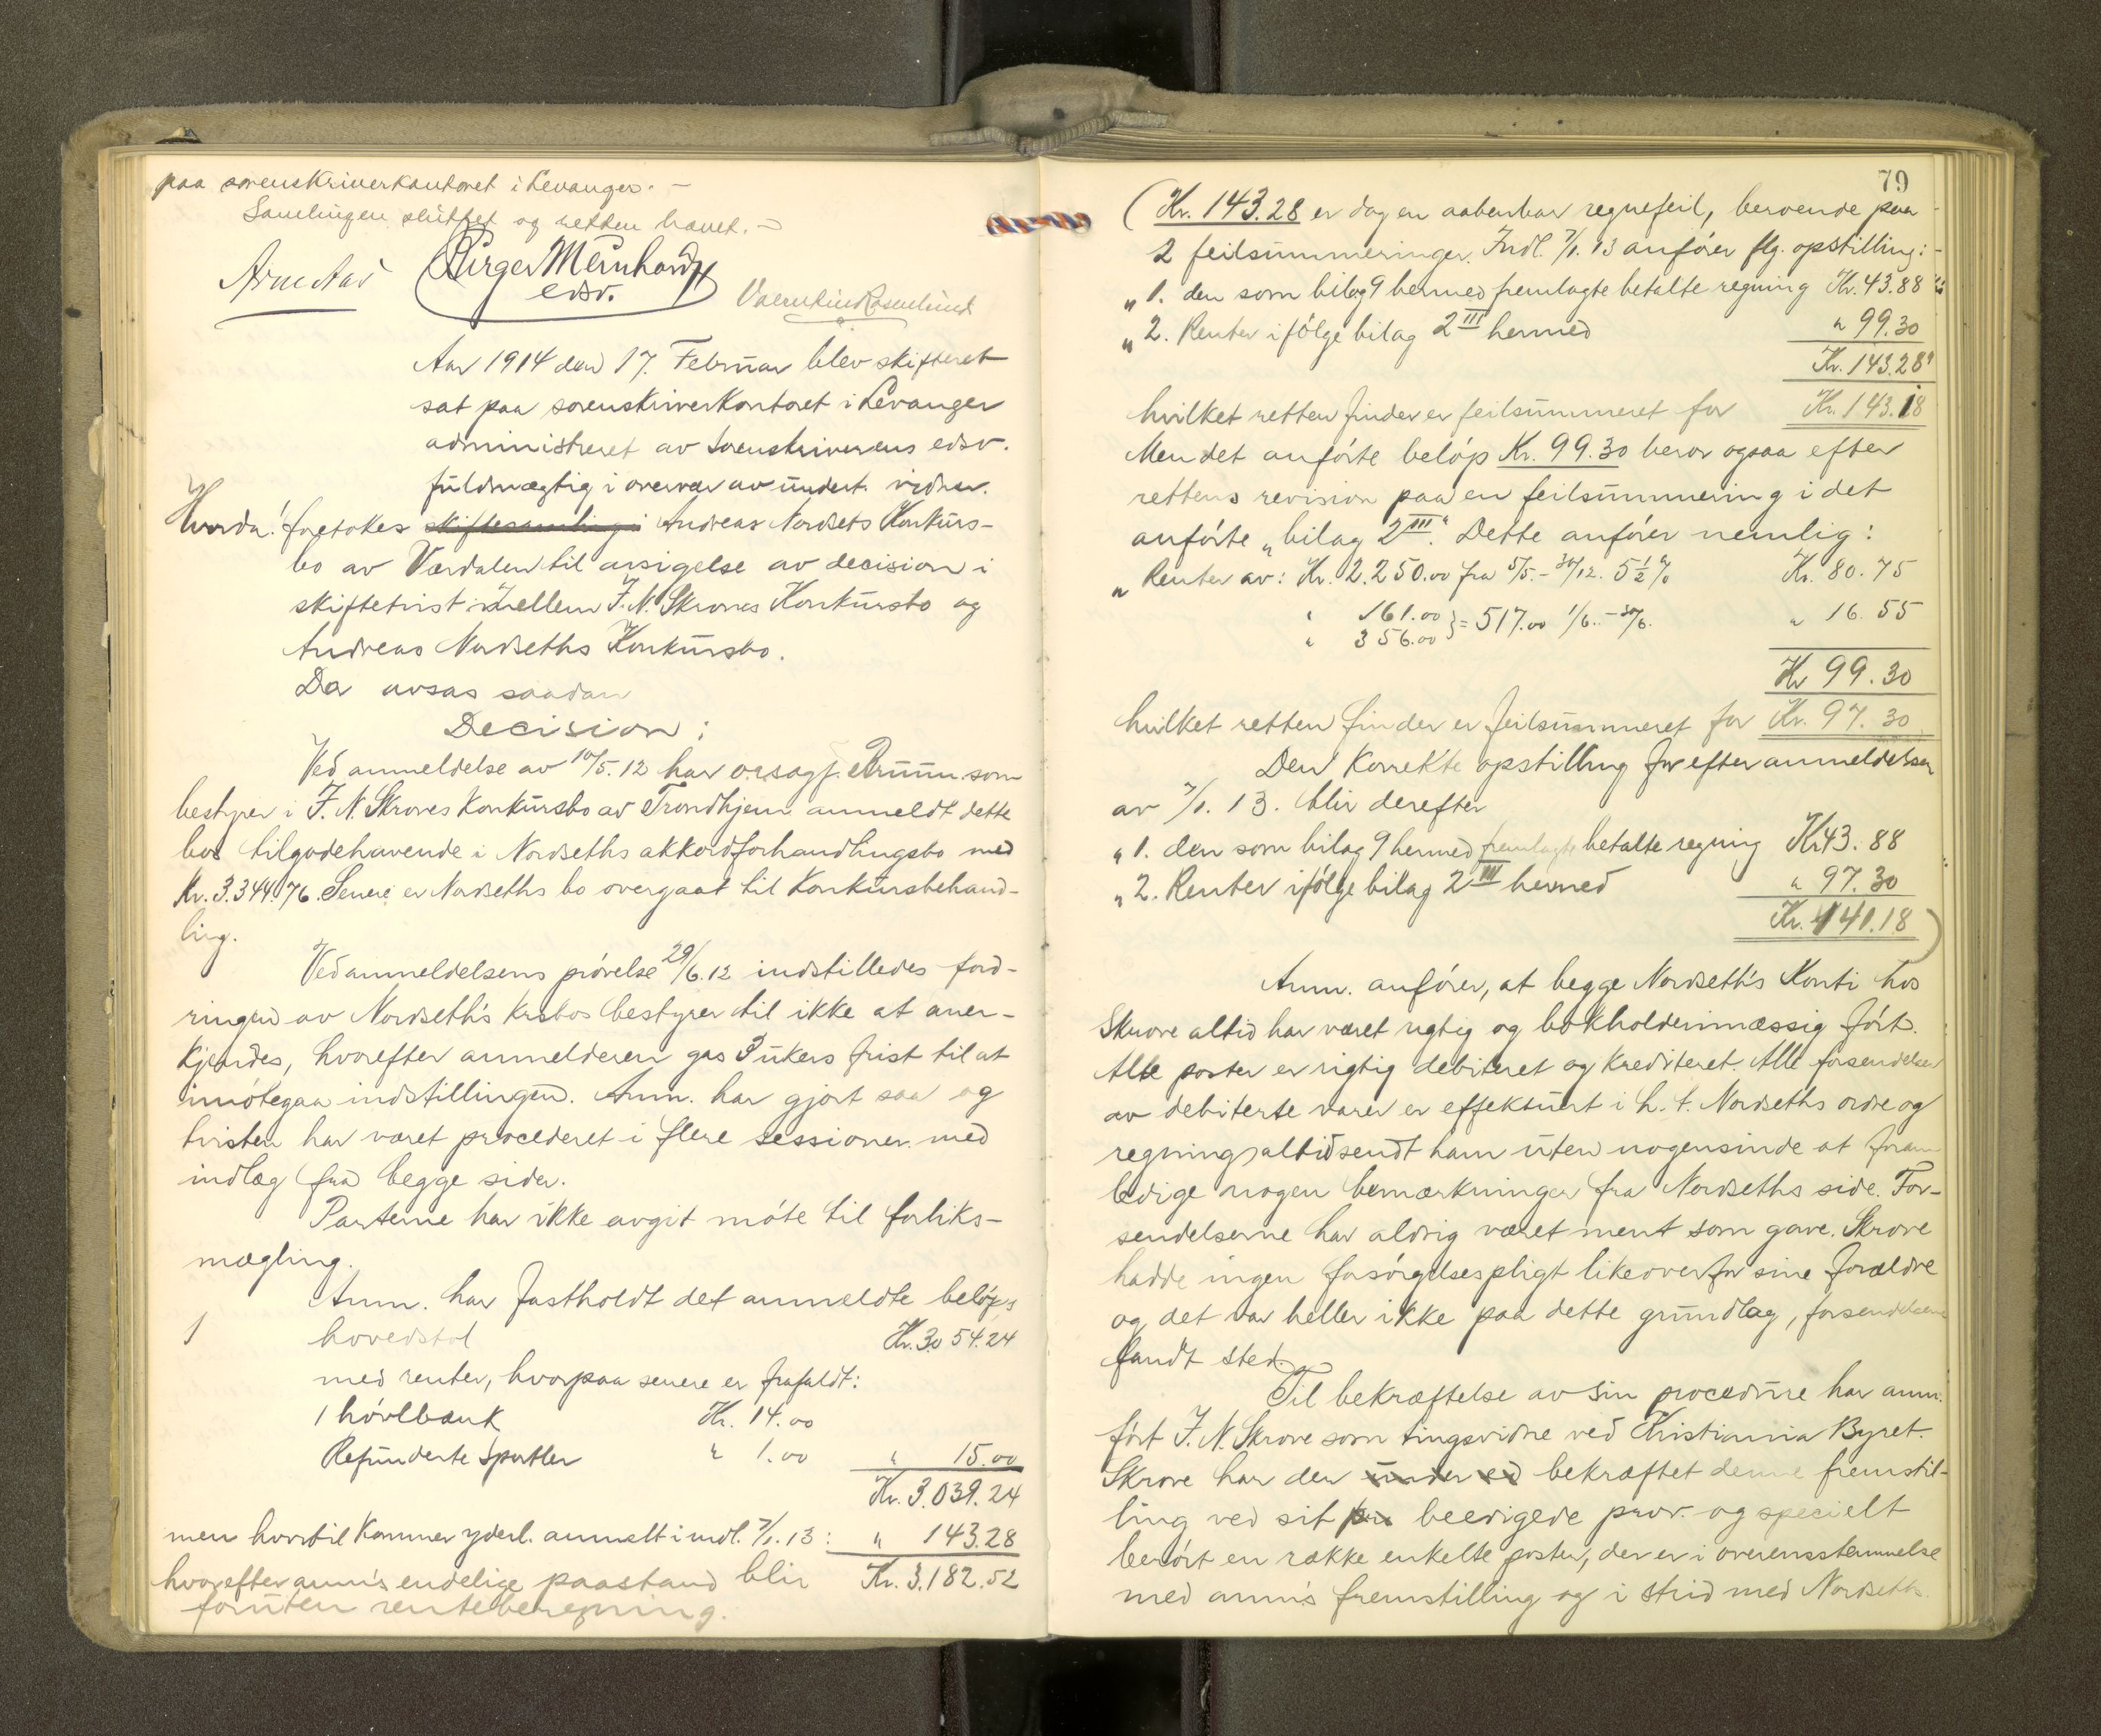 paa sorenskriverkontoret i Levanger. –
Samlingen sluttet og retten hævet. –
Birger Meinhardt
edsv.
Aar 1914 den 17. Februar blev skifteret
sat paa sorenskriverkontoret i Levanger
administreret av sorenskriverens edsv.
fuldmægtig i overvær av undert. vidner.
Hvorda! foretokes skiftesamling i Andreas Nordsets Konkurs-
bo av Værdalen til avsigelse av decision i
skiftetvist mellem J. N. Skroves Konkursbo og
Andreas Nordseths Konkursbo.
Da avsas saadan
Decision:
Ved anmeldelse av 10/5. 12 har o.r.sagf. Bruun som
bestyrer i J. N. Skroves Konkursbo av Trondhjem anmeldt dette
bos tilgodehavende i Nordseths akkordforhandlingsbo med
Kr. 3.344.76. Senere er Nordseths bo overgaat til Konkursbehand-
ling.
Ved anmeldelsens prövelse 29/6. 12 indstilledes ford-
ringen av Nordseth's Krsbos bestyrer til ikke at aner-
kjendes, hvorefter anmelderen gas 3 ukers frist til at
imötegaa indstillingen. Anm. har gjort saa og
tvisten har været procederet i flere sessioner med
indlæg fra begge sider.
Parterne har ikke avgit möte til forliks-
mægling.
Anm. har fastholdt det anmeldte belöp,
1 hovedstol Kr. 30 54.24
med renter, hvorpaa senere er frafaldt:
1 hövlbænk Kr. 14.00
Refunderte Sportler " 1.00 " 15.00
Kr. 3.039.24
men hvortil Kommer yderl. anmelt i indl. 7/1. 13: " 143.28
hvorefter anm's endelige paastand blir Kr. 3.182.52
foruten renteberegning.
79
(Kr. 143.28 er dog en aabenbar regnefeil, beroende paa
2 feilsummeringer. Indl. 7/1. 13 anförer flg. opstilling: -
" 1. den som bilag 9 hermed fremlagte betalte regning Kr. 43.88
" 2. Renter i fölge bilag 2 III hermed " 99.30
Kr. 143.28"
hvilket retten finder er feilsummeret for Kr. 143.18
Men det anförte belöp Kr. 99.30 beror ogsaa efter
rettens revision paa en feilsummering i det
anförte "bilag 2 III". Dette anförer nemlig:
" Renter av: Kr. 2.250.00 fra 5/5. - 30/12. 5 1/2 % Kr. 80.75
" 161.00
" 356.00 } = 517.00 1/6. - 30/6. " 16.55
Kr 99.30
hvilket retten finder er feilsummeret for Kr. 97.30
Den Korrekte opstilling for efteranmeldelsen
av 7/1. 13. blir derefter
" 1. den som bilag 9 hermed fremlagte betalte regning Kr 43.88
" 2. Renter ifölge bilag 2 III hermed " 97.30
Kr. 141.18)
Anm. anförer, at begge Nordseth's Konti hos
Skrove altid har været rigtig og bokholderimæssig fört.
Alle poster er rigtig debiteret og krediteret. Alle forsendelser
av debiterte varer er effektuert i h. t. Nordseths ordre og
regning altid sendt ham uten nogensinde at foran
ledige nogen bemærkninger fra Nordseths side. For-
sendelserne har aldrig været ment som gave. Skrove
hadde ingen forsörgelsespligt likeoverfor sine forældre
og det var heller ikke paa dette grundlag, forsendelserne
fandt sted.
Til bekræftelse av sin procedure har anm.
fört J. N. Skrove som tingsvidne ved Kristiania Byret.
Skrove har der under ed bekræftet denne fremstil-
ling ved sit beedigede prov. og specielt
berört en række enkelte poster, der er i overensstemmelse
med anm's fremstilling og i strid med Nordseths